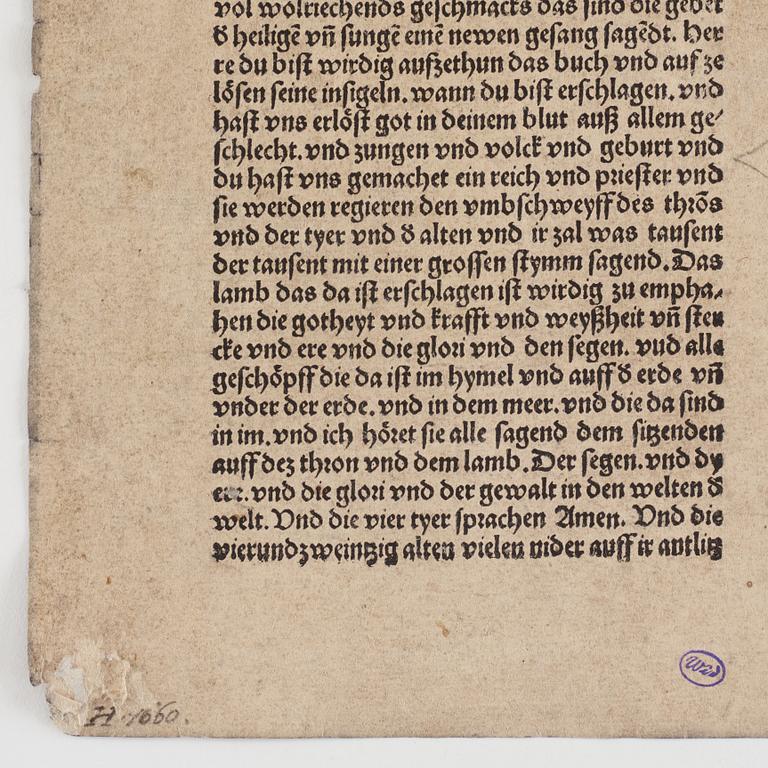 vol wolriechends geschmacks das sind die gebet
δ heiligē vñ sungē einē newen gesang sagēdt. Her
re du bist wirdig aufzethun das buch vnd auf ze
lösen seine insigeln. wann du bist erschlagen. vnd
hast vns erlöst got in deinem blut auß allem ge⸗
schlecht. vnd zungen vnd volck vnd geburt vnd
du hast vns gemachet ein reich vnd priester vnd
sie werden regieren den vmbschweyff des thrōs
vnd der tyer vnd δ alten vnd ir zal was tausent
der tausent mit einer grossen stymm sagend. Das
lamb das da ist erschlagen ist wirdig zu empha⸗
hen die gotheyt vnd krafft vnd weyßheit vñ ster
cke vnd ere vnd die glori vnd den segen. vnd alle
geschöpff die da ist im hymel vnd auff δ erde vñ
vnder der erde. vnd in dem meer. vnd die da sind
in im. vnd ich höret sie alle sagend dem sitzenden
auff dez thron vnd dem lamb. Der segen. vnd dy
eer. vnd die glori vnd der gewalt in den welten δ
welt. Vnd die vier tyer sprachen Amen. Vnd die
vierundzweintzig alten vielen nider auff ir antlitz
H. 1660.